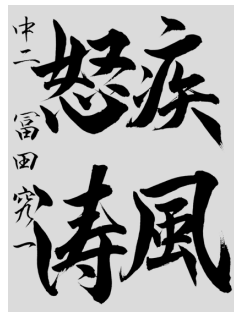 疾風
怒涛
中二 冨田 究一